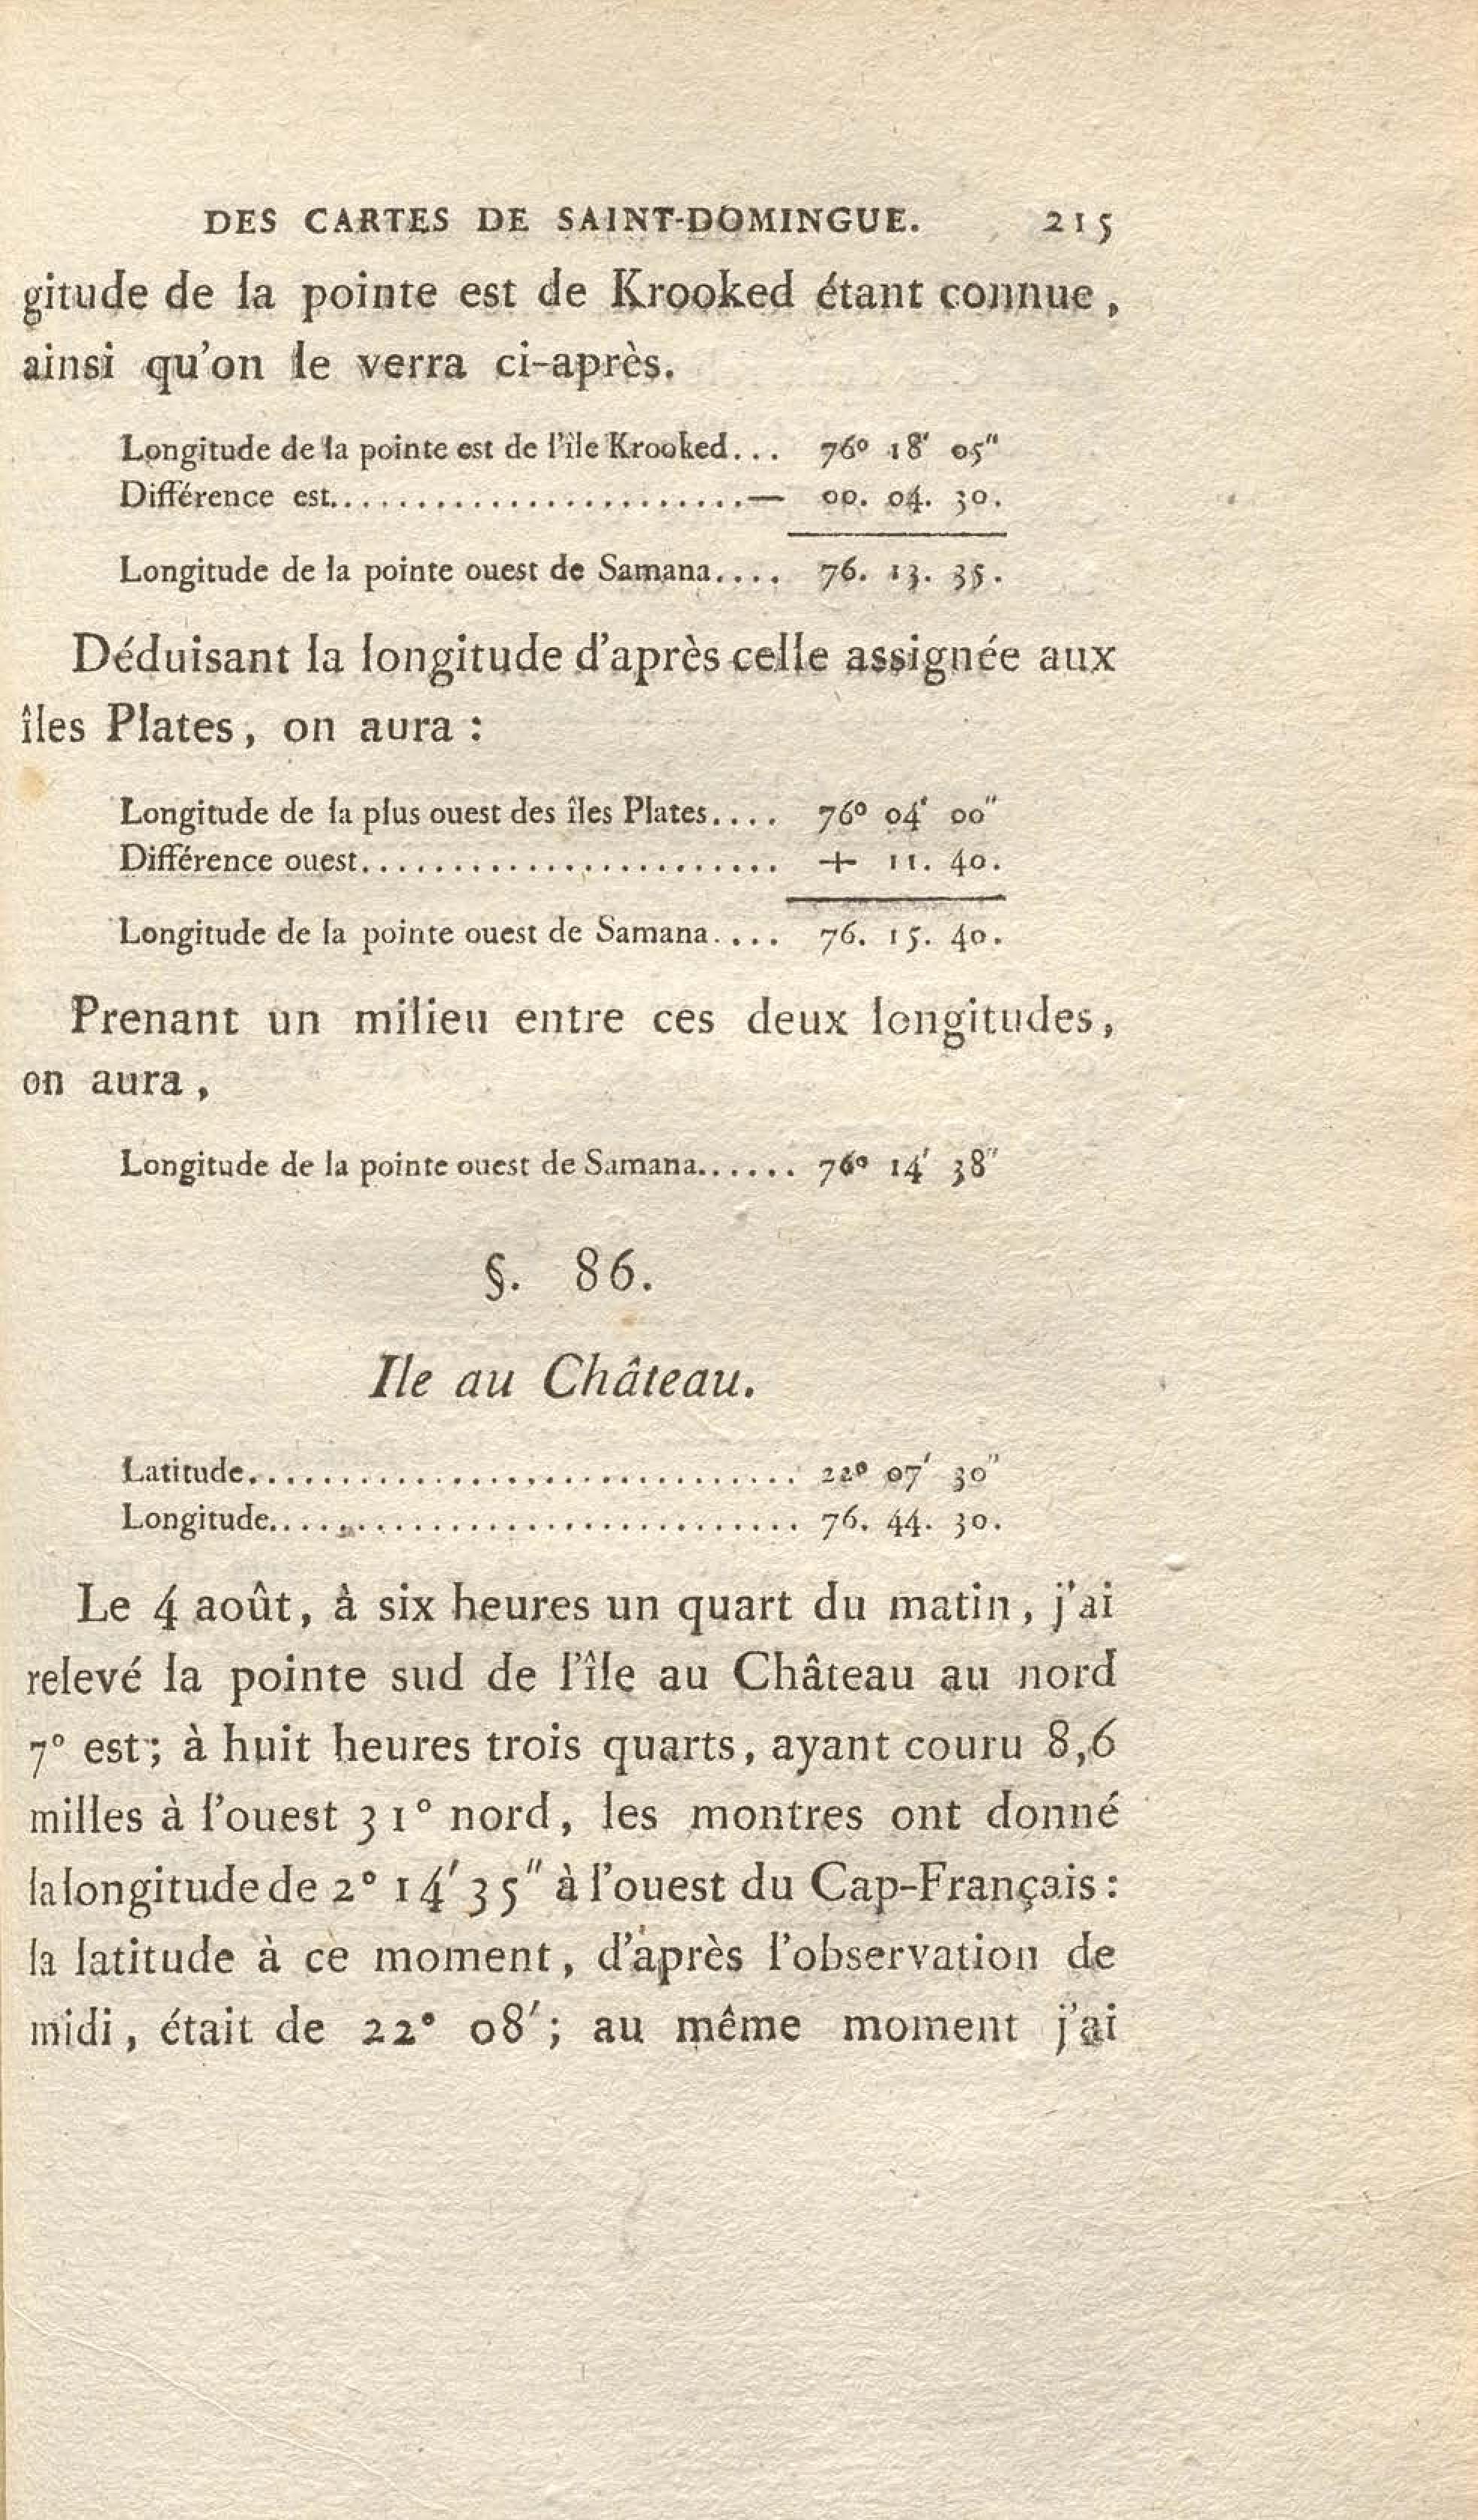 DES CARTES DE SAINT-DOMINGUE. 215
gitude de la pointe est de Krooked étant connue,
ainsi qu'on le verra ci-après.
Longitude de la pointe est de l'île Krooked... 76° 18' 05"
Différence est.......................— 00. 04. 30.
Longitude de la pointe ouest de Samana.... 76. 13. 35.
Déduisant la longitude d'après celle assignée aux
îles Plates, on aura :
Longitude de la plus ouest des îles Plates.... 76° 04' 00"
Différence ouest....................... + 11. 40.
Longitude de la pointe ouest de Samana.... 76. 15. 40.
Prenant un milieu entre ces deux longitudes,
on aura,
Longitude de la pointe ouest de Samana...... 76° 14' 38"
§. 86.
Ile au Château.
Latitude.............................. 22° 07' 30"
Longitude............................. 76. 44. 30.
Le 4 août, à six heures un quart du matin, j'ai
relevé la pointe sud de l'île au Château au nord
7° est; à huit heures trois quarts, ayant couru 8,6
milles à l'ouest 31° nord, les montres ont donné
la longitude de 2° 14' 35" à l'ouest du Cap-Français :
la latitude à ce moment, d'après l'observation de
midi, était de 22° 08'; au même moment j'ai